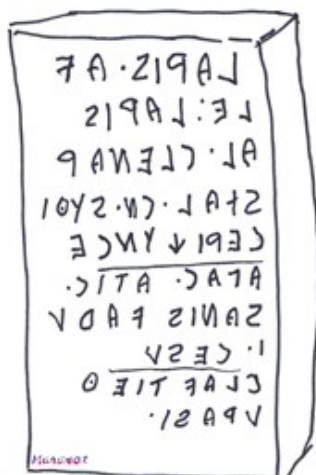 LAPIS·AF
LE:LAPIS
AL·CLENAP
STAL·CN·SYOI
CEPI↓YNCE
ATAC·ATIC·
SANIS FAOV
I·CESV
CLAF TIE O
VPASI·